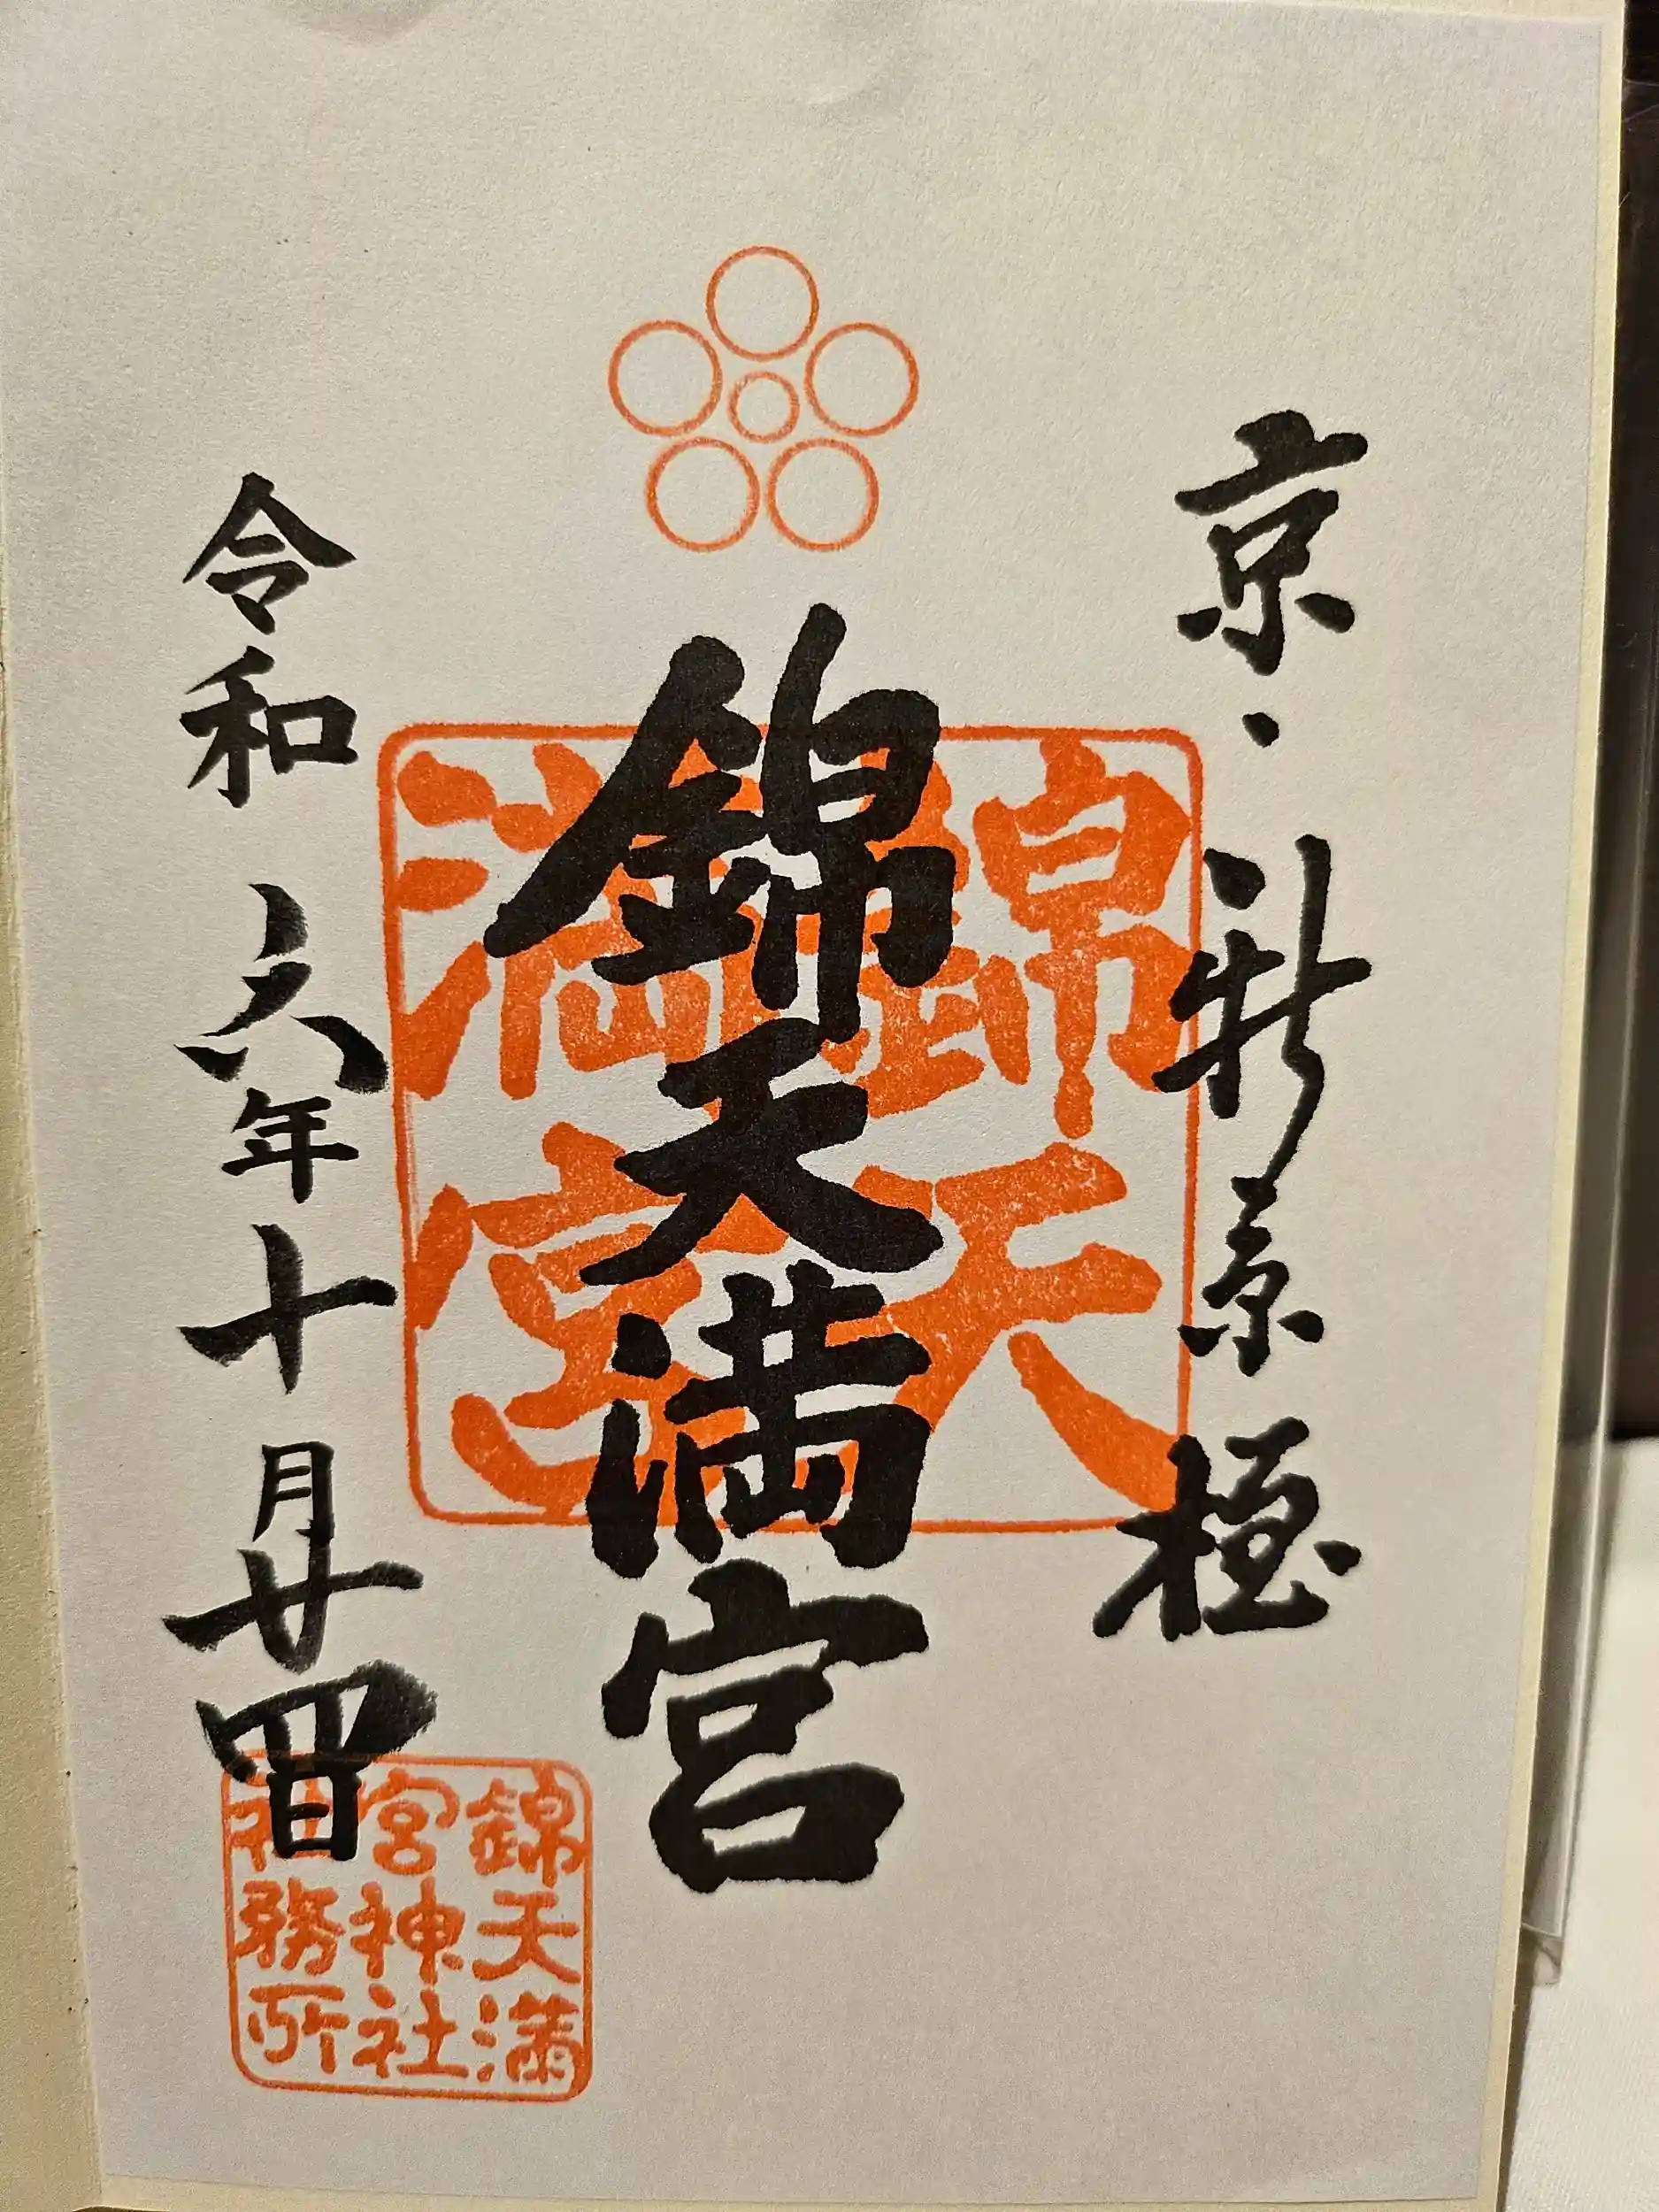 京・新京極
錦天満宮
令和六年十月廿四日
錦天
満宮
錦天満
宮神社
社務所